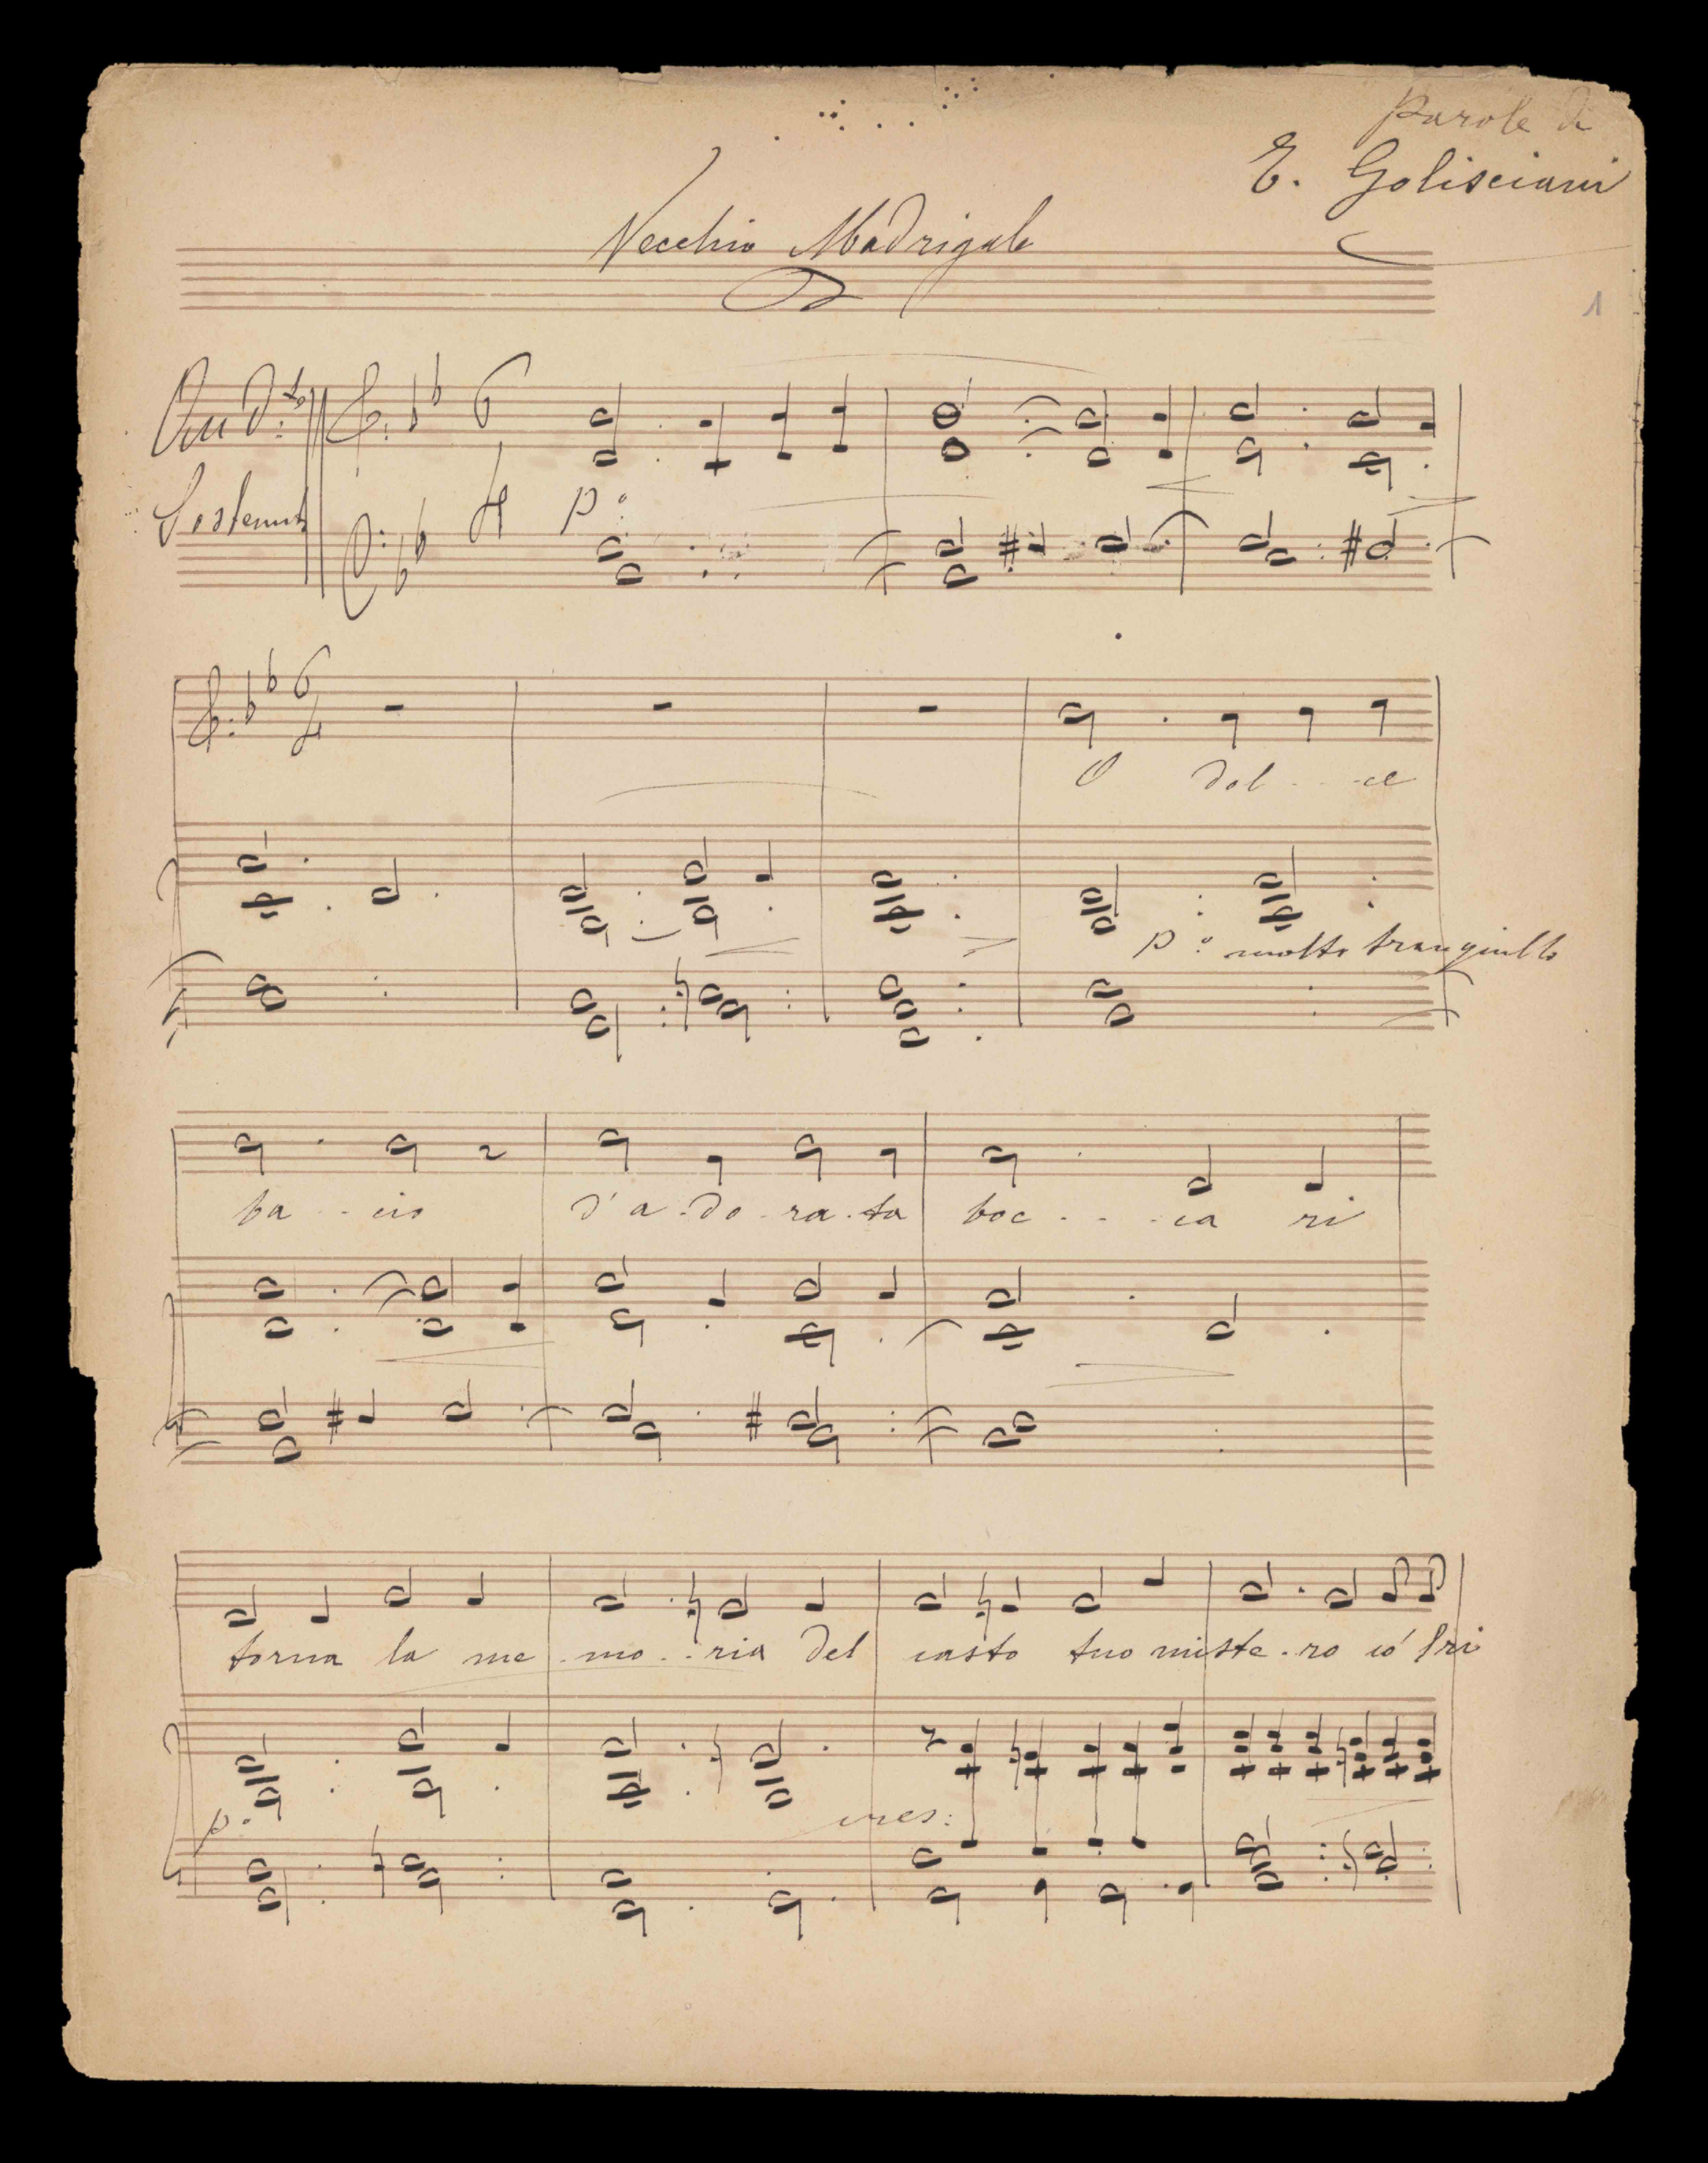 Parole di
E. Golisciani
Vecchio Madrigale
1
And.to
Sostenuto
6
4
p.o
6
4
O dol - - ce
p.o molto tranquillo
ba - - cio d'a - do - ra - ta boc - - - ca ri
torna la me - mo - - ria del casto tuo miste - ro co' pri
p.o
cres: